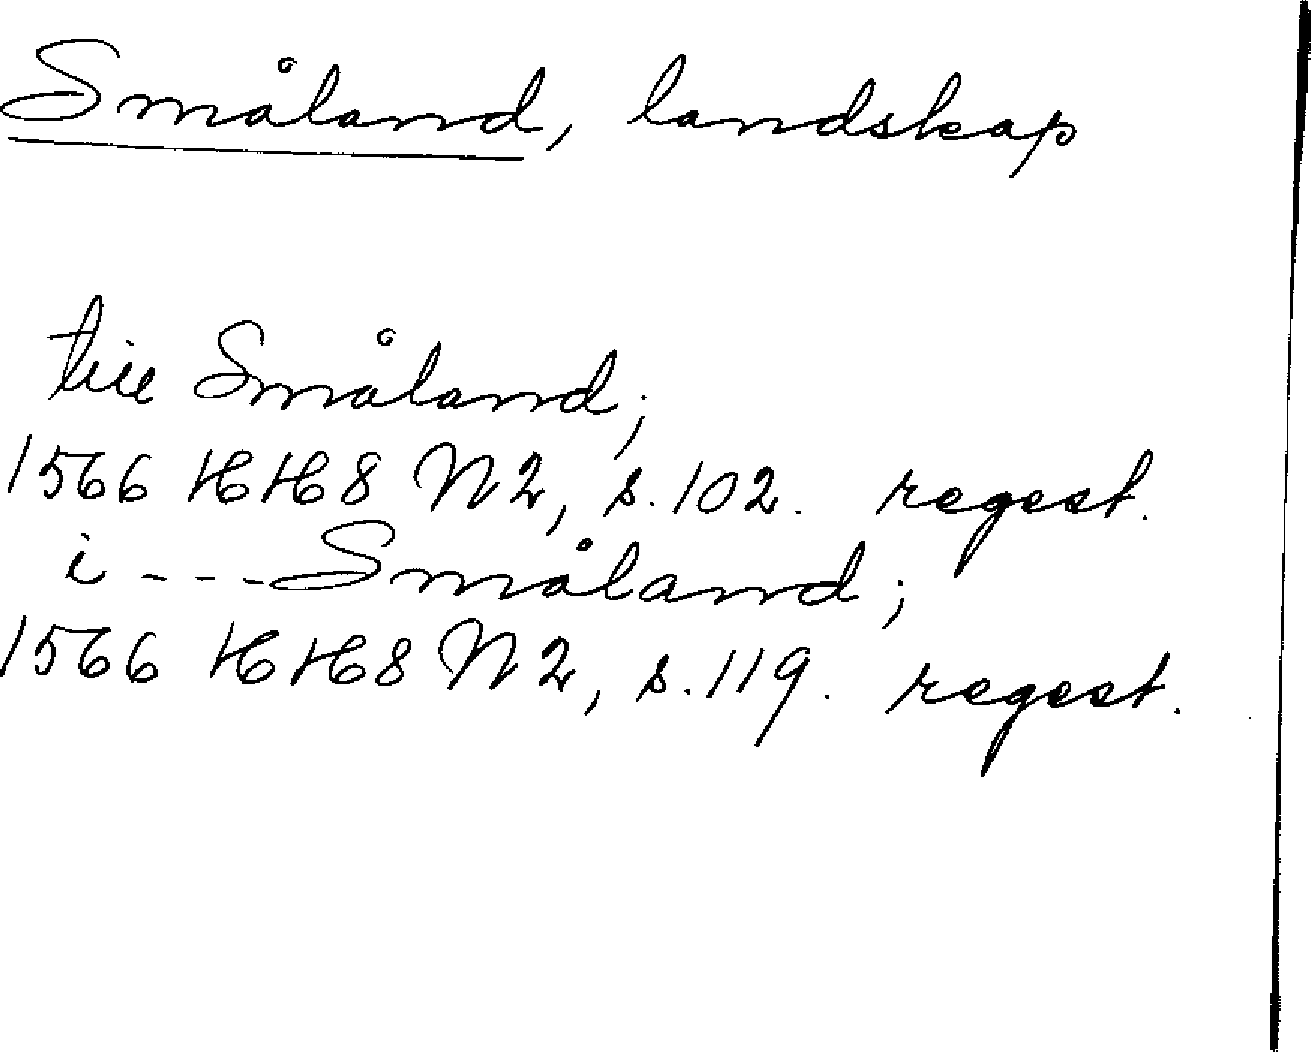 Småland, landskap
till Småland;
1566 HH 8 N 2, s. 102. regest.
i --- Småland;
1566 HH 8 N 2, s. 119. regest.